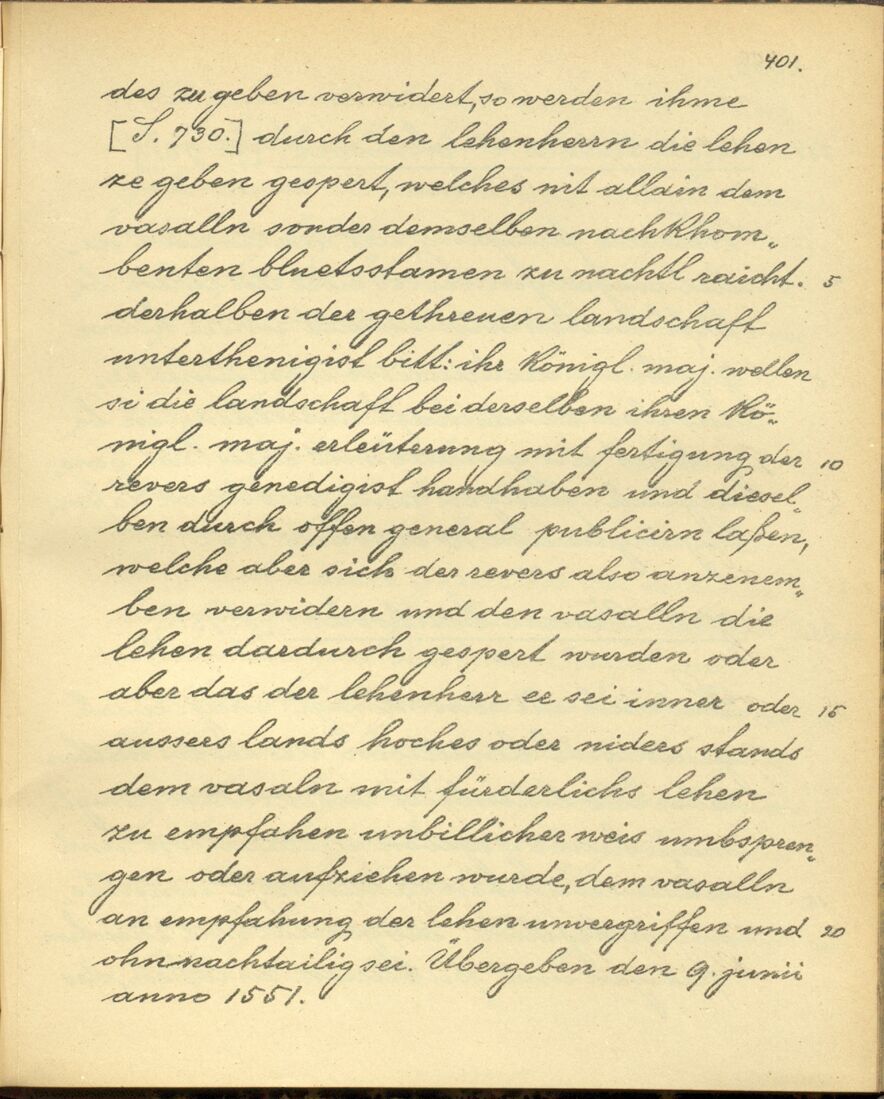 401.
des zu geben verwidert, so werden ihme
[S. 730.] durch den lehenherrn die lehen
ze geben gespert, welches nit allain dem
vasalln sonder demselben nachkhom„
benten bluetsstamen zu nachtl raicht. 5
derhalben der gethreuen landschaft
unterthenigist bitt: ihr königl. maj. wellen
si die landschaft bei derselben ihren kö„
nigl. maj. erleüterung mit fertigung der 10
revers genedigist handhaben und diesel„
ben durch offen general publicirn laßen,
welche aber sich der revers also anzenem„
ben verwidern und den vasalln die
lehen dardurch gespert wurden oder
aber das der lehenherr er sei inner oder 15
aussers lands hoches oder niders stands
dem vasaln mit fürderlichs lehen
zu empfahen unbillicher weis umbspren„
gen oder aufziehen wurde, dem vasalln
an empfahung der lehen unvergriffen und 20
ohn nachtailig sei. Übergeben den 9. junii
anno 1551.